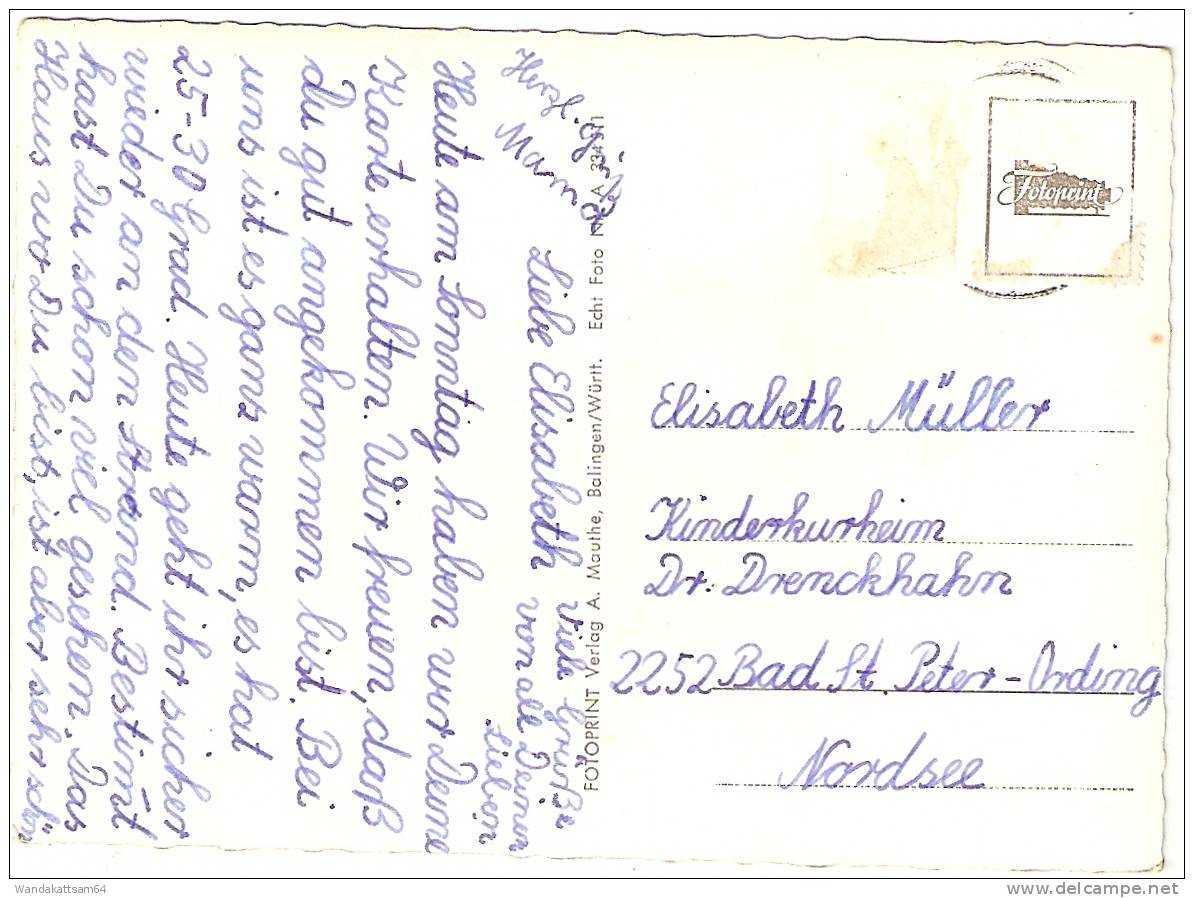 Liebe Elisabeth
Heute am Sonntag haben wir Deine
Karte erhalten. Wir freuen, daß
du gut angekommen bist. Bei
uns ist es ganz warm, es hat
25-30 Grad. Heute geht ihr sicher
wieder an den Strand. Bestim̄t
hast Du schon viel gesehen. Das
Haus wo Du bist, ist aber sehr schön
Viele Grüße
von all Deinen
Lieben.
Herzl.
FOTOPRINT Verlag A. Mauthe, Balingen/Württ. Echt Foto A 334 511
Fotoprint
Elisabeth Müller
Kinderkurheim
Dr. Drenckhahn
2252 Bad St. Peter-Ording
Nordsee
Wandakattsam64
delcampe.net